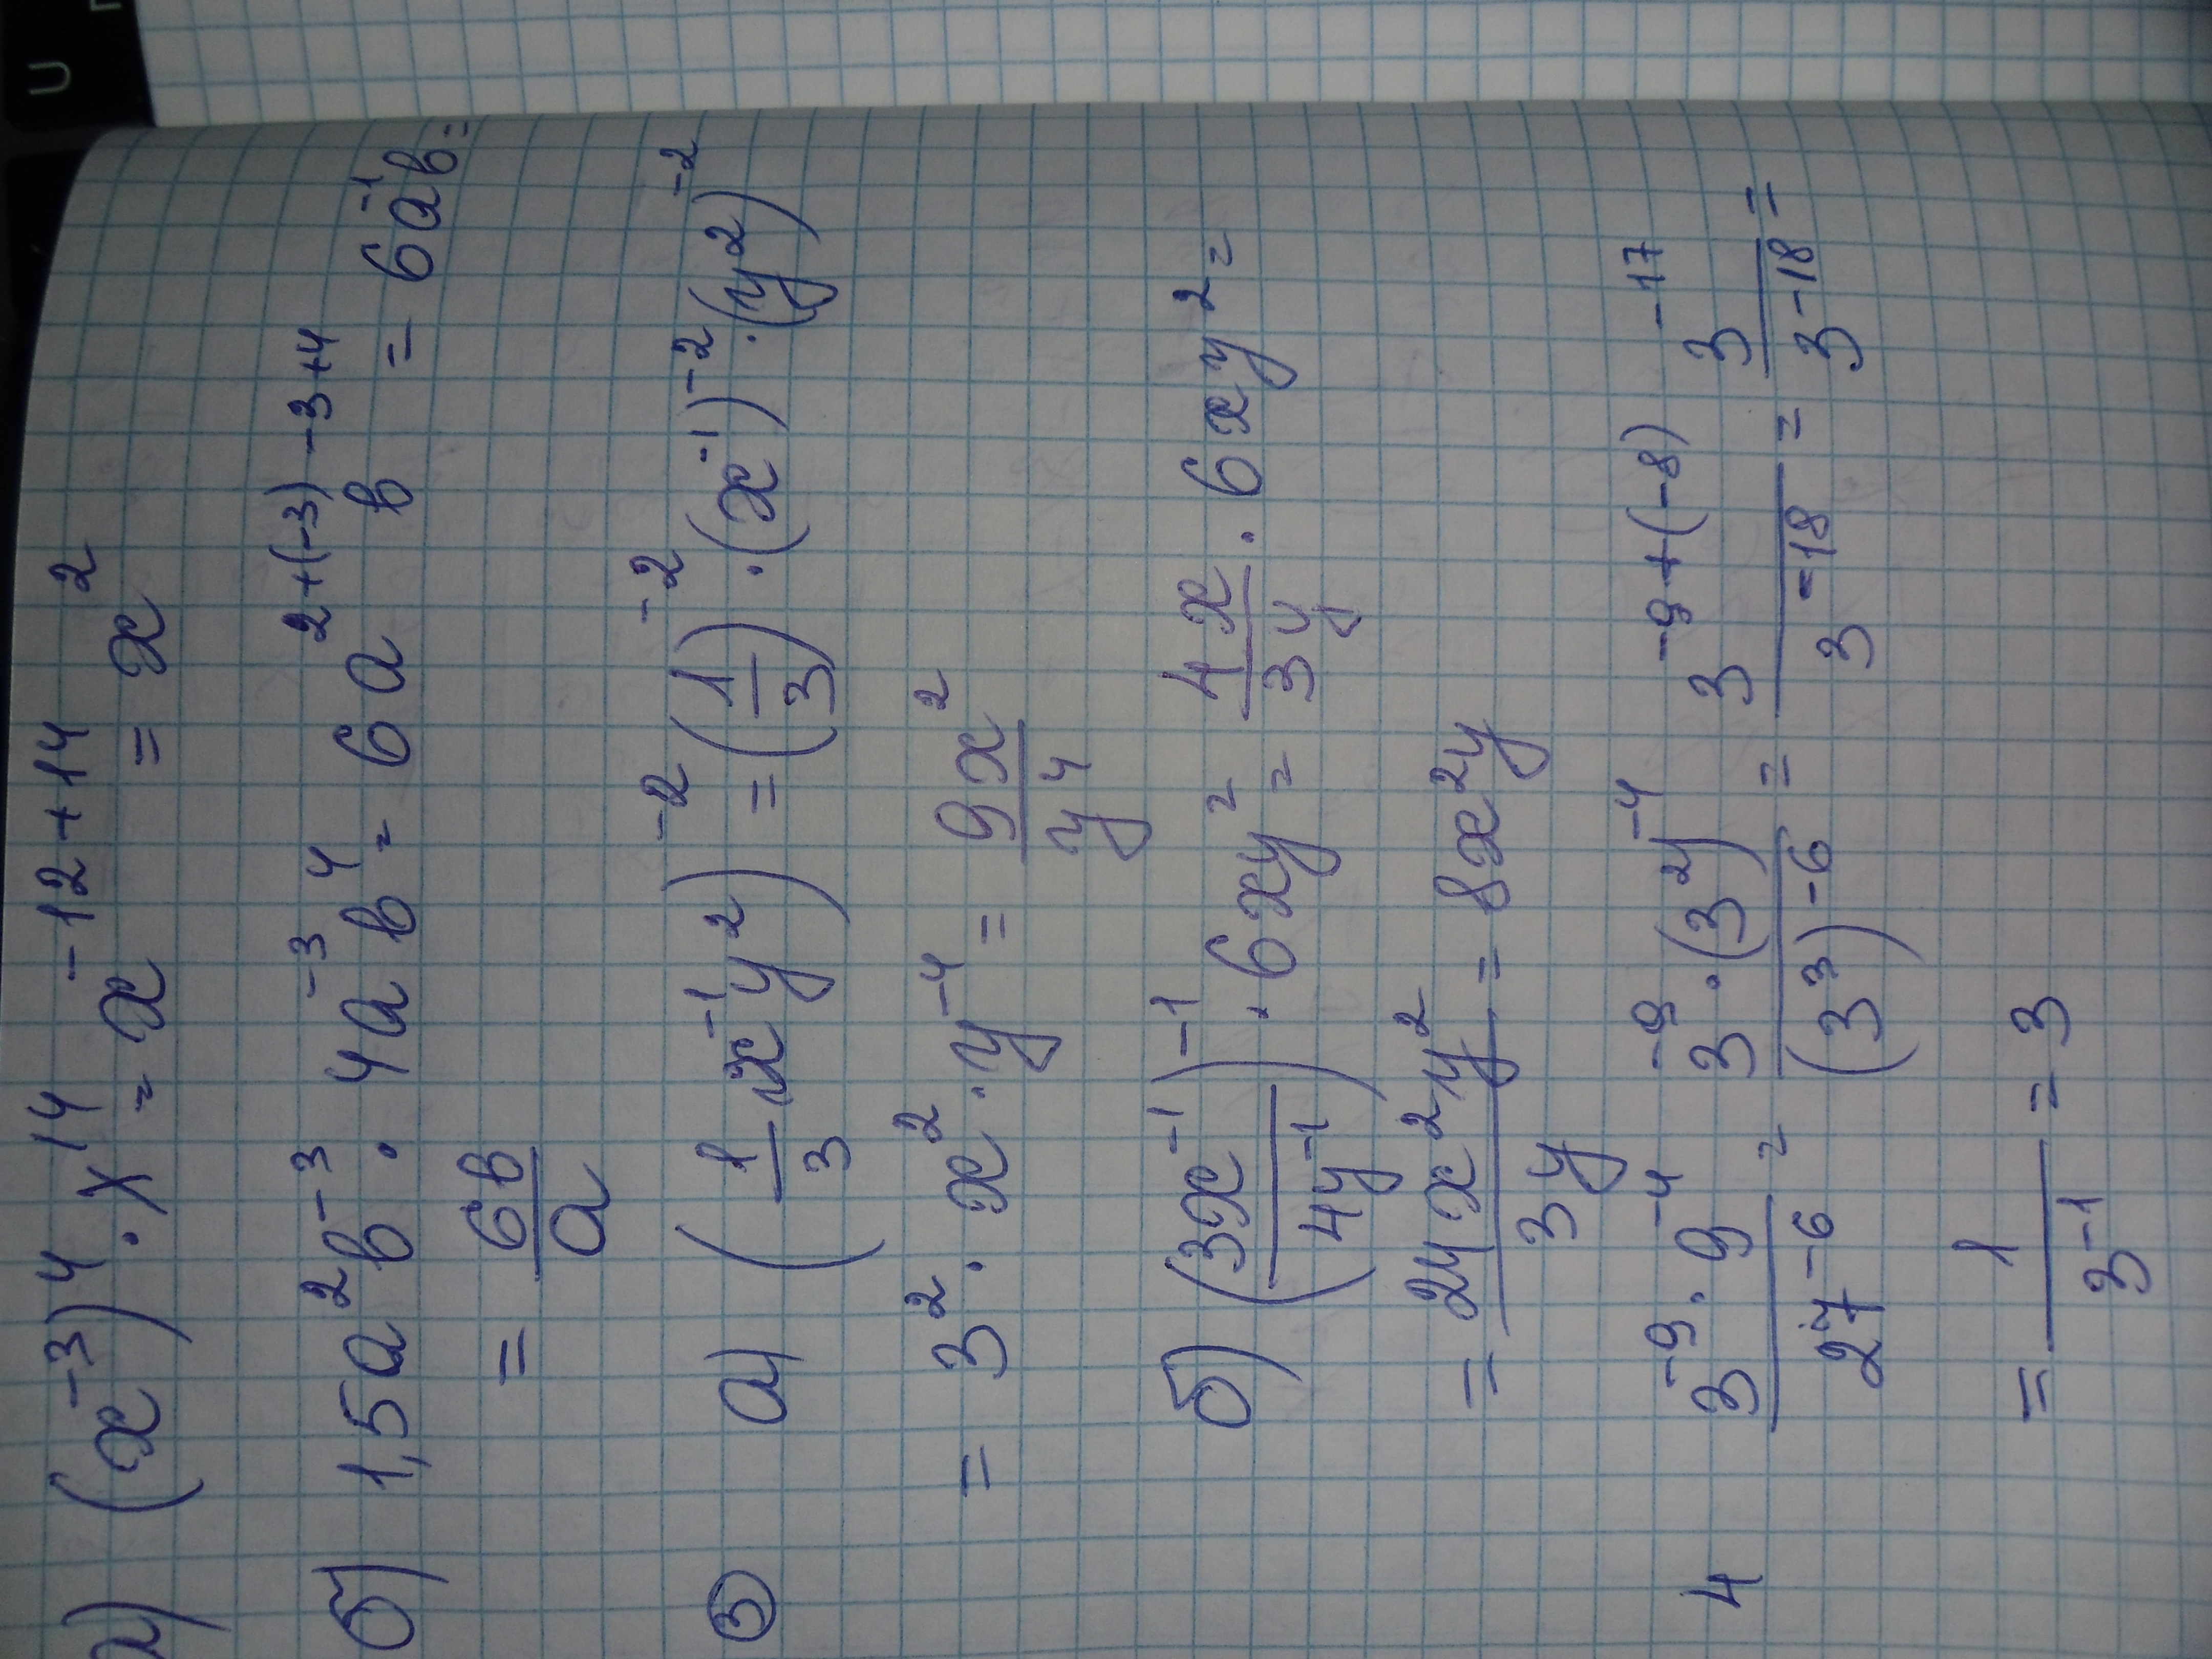 а) (x⁻³)⁴ · x¹⁴ = x⁻¹²⁺¹⁴ = x²
б) 1,5a²b⁻³ · 4a⁻³b⁴ = 6a²⁺⁽⁻³⁾b⁻³⁺⁴ = 6a⁻¹b =
= 6b/a
③ а) (1/3 x⁻¹y²)⁻² = (1/3)⁻² · (x⁻¹)⁻² · (y²)⁻²
= 3² · x² · y⁻⁴ = 9x²/y⁴
б) (3x⁻¹/4y⁻¹)⁻¹ · 6xy² = 4x/3y · 6xy² =
= 24x²y²/3y = 8x²y
4 3⁻⁹ · 9⁻⁴/27⁻⁶ = 3⁻⁹ · (3²)⁻⁴/(3³)⁻⁶ = 3⁻⁹⁺⁽⁻⁸⁾/3⁻¹⁸ = 3⁻¹⁷/3⁻¹⁸ =
= 1/3⁻¹ = 3
U